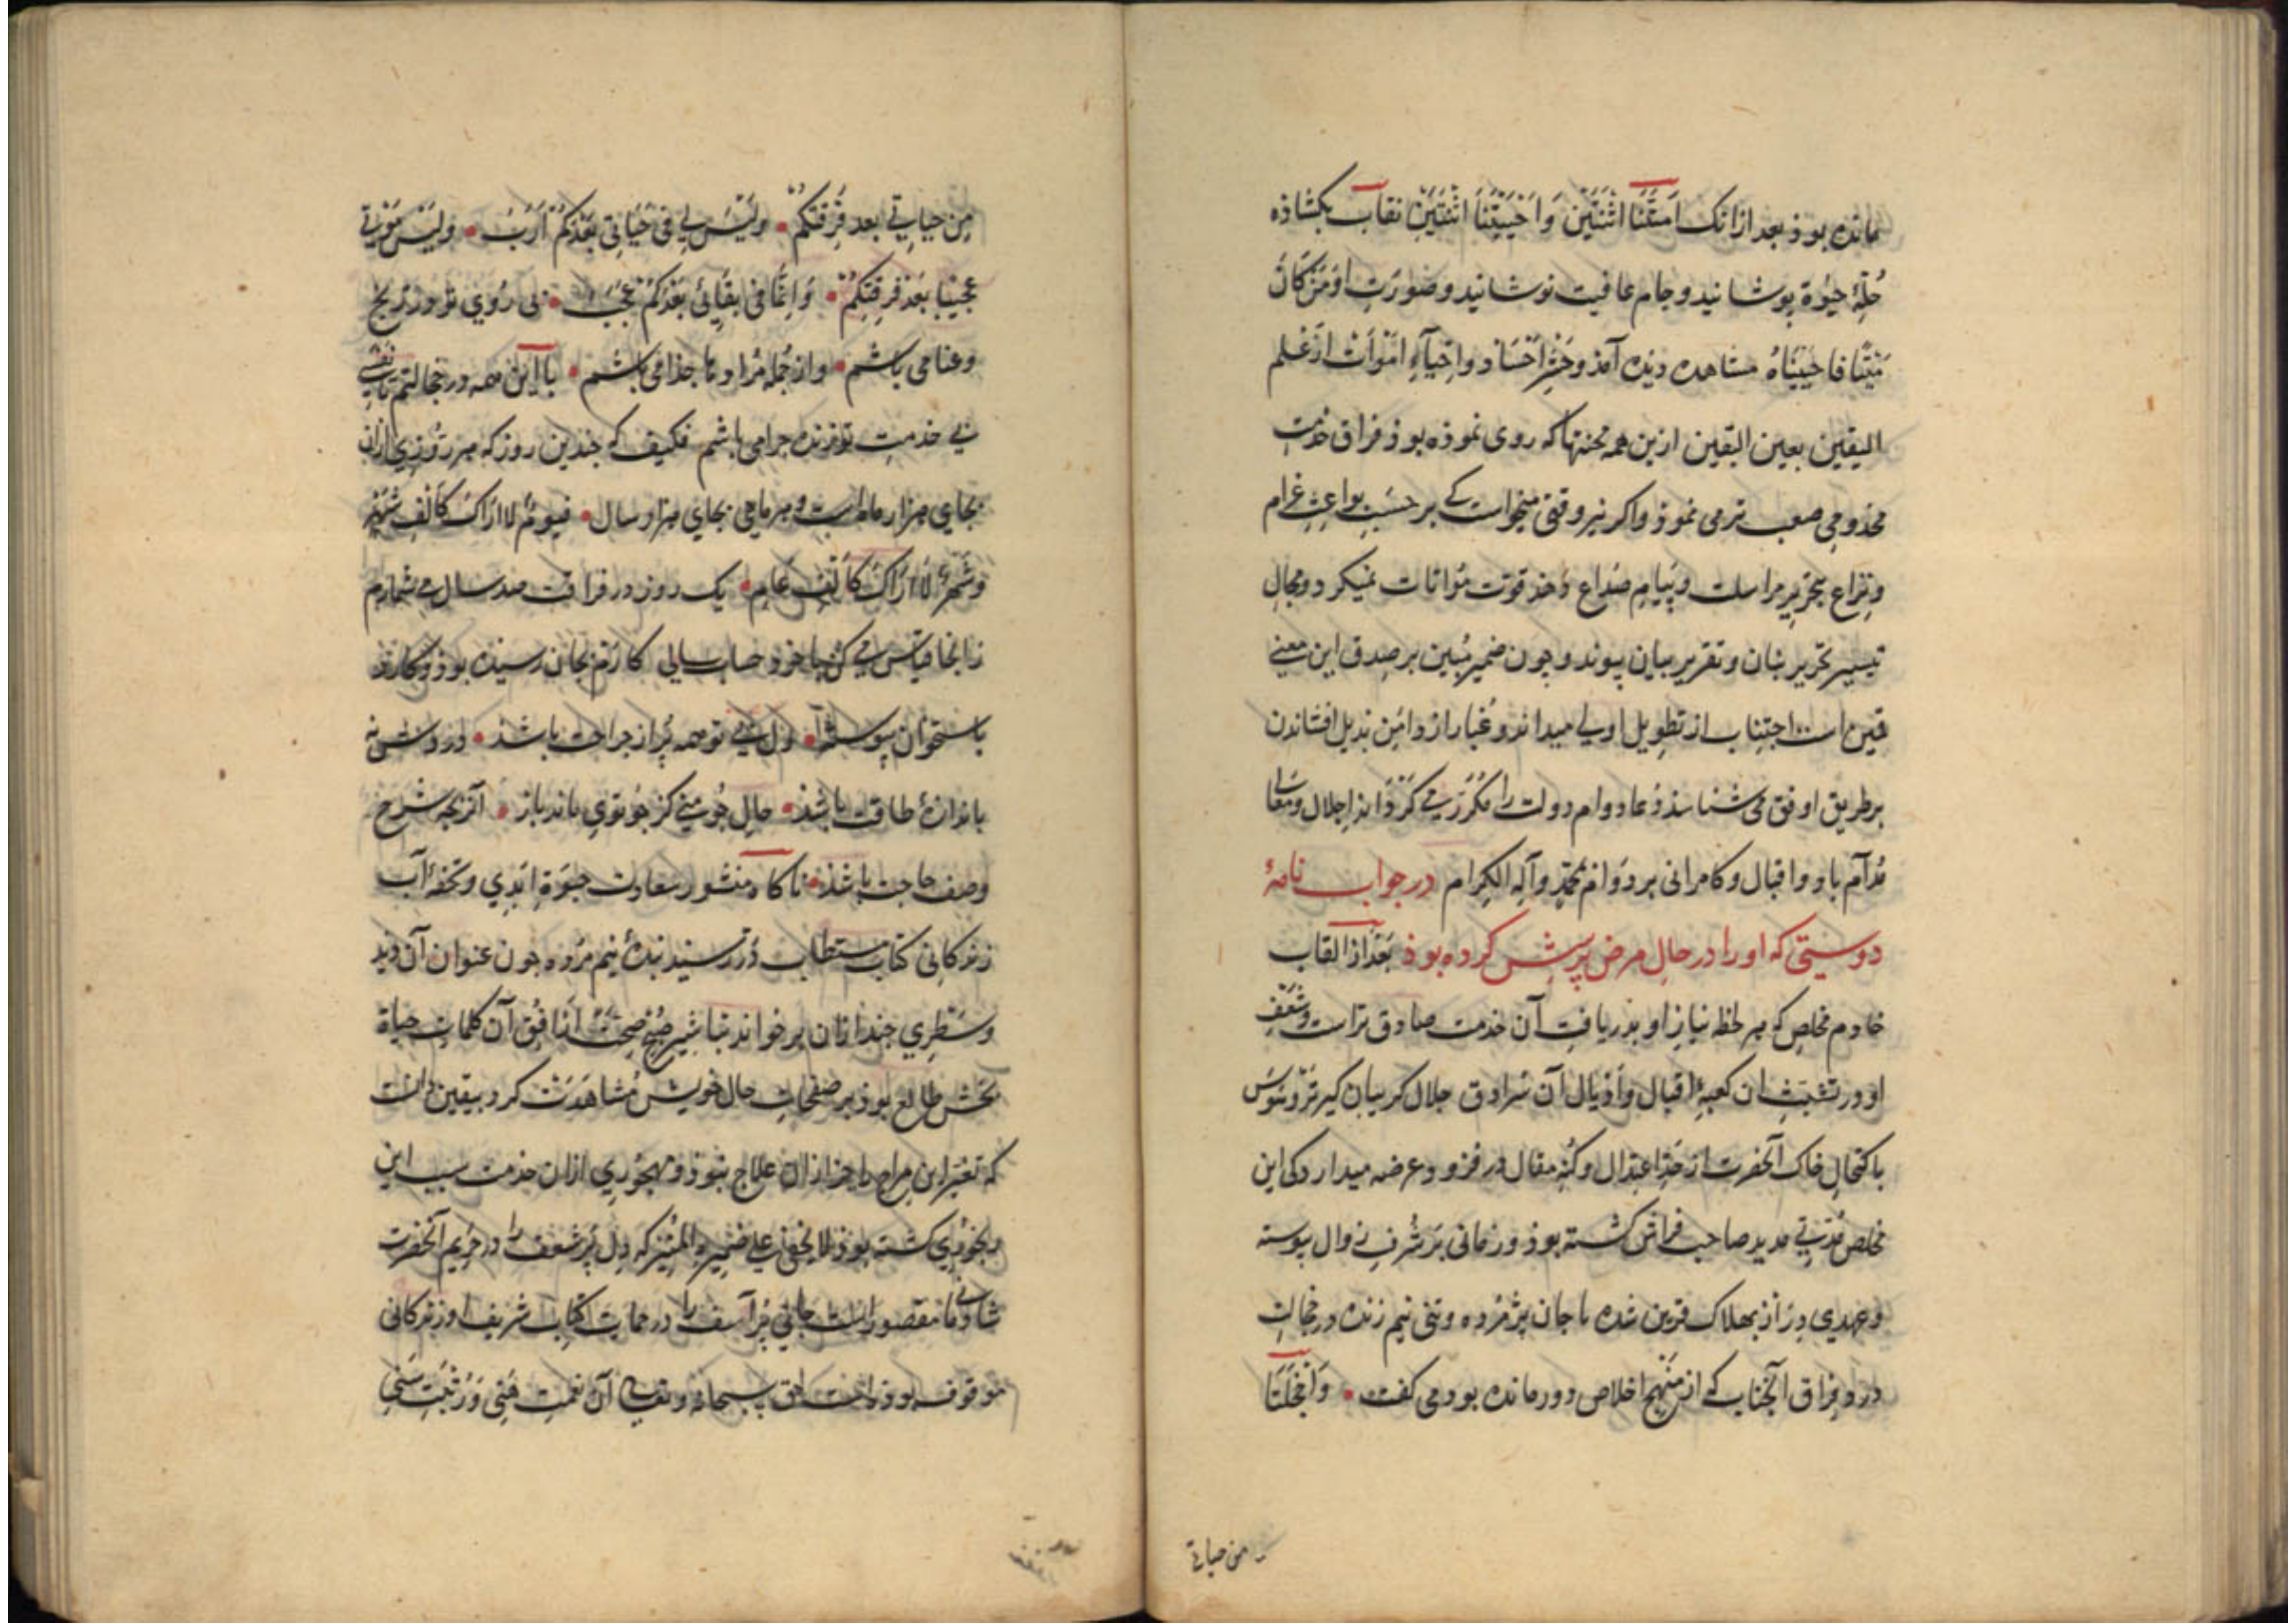 مانده بوذ بعد ازانک اَمَتَّنَا اثْنَتَيْنِ وَاَحْيَيْتَنَا اثْنَتَيْنِ نقاب بکشاذه
حُلّهٔ حیوة پوشانید و جام عافیت نوشانید و صورت اَوَمَنْ کَانَ
مَیْتًا فَاَحْیَیْنَاهُ مشاهده دیده آمذ و حشر اجساد و احیآءِ اموات از علم
الیقین بعین الیقین ازین همه محنتها که روی نموذه بوذ فراق خدمت
مخذومی صعب تر می نموذ و اکر نیز وقتی میخواست کی بر حسب بواعث غرام
و نزاع بتحریر مراسلت و پیام صداع دهذ قوت مواتات نمیکرد و مجال
تیسیر تحریر بنان و تقریر بیان پیوند و چون ضمیر مبین بر صدق این معنی
اجتناب از تطویل اولی میداند و غبار از دامن بذیل افشاندن
بر طریق اوفق می شناسذ دعا دوام دولت را مکرّر می کرداند اجلال و معالی
مُدآم باد و اقبال و کامرانی بر دوام بمحمّد وآلِه الکِرام در جواب نامهٔ
دوستی که او را در حالِ مرض پرسِش کرده بوذ بَعْد از القاب
خادم مخلص که هر لحظه نیازِ او بذریافتِ آن خدمت صادق تراست و شَعَفِ
او در تشبث ان کعبهٔ اقبال و اَذیال آن سُرادق جلال کریبان کیرتر و هوس
باکتحالِ خاک آنحضرت از حدّ اعتدال و کُنهِ مقال در فزود عرضه میدارد کی این
مخلص مُدّتی مدید صاحب فراش کشته بوذ و زمانی بر شُرفِ زوال پیوسته
و عهدی دراز بهلاک قرین شده با جان پژمرده و تنی نیم زنده در خجالتِ
درد فِراق آنجناب کی از مَنْهج اخلاص دور مانده بود می کفت • وَاخَجْلَتَا
من حیاتی
مِن حیاتی بعد فُرقَتکُم • ولَیْسَ لی فی حَیَاتی بَعْدَکُمْ اَرَبٌ • ولَیْسَ مَوْتی
عجیبًا بَعْد فُرقَتِکُمْ • وَاِنّمَا فی بقَائی بَعْدَکُمْ عَجَبٌ • بی رُوی تو در رنج
و عنا می باشم • و از جمله مراد ها جذا می باشم • با این همه در خجالتم تا نفسی
بی خدمتِ تو زنده چرا می باشم فکیف که چندین روز که هر روزی ازان
بجای هزار ماه است و هر ماهی بجای هزار سال • فیومٌ لا اَراکَ کَاَلْفِ شَهْرٍ
وشَهْرٌ لَا اَرَاکَ کَاَلْفِ عَامٍ • یک روز در فراقت صد سال می شمارم
زانجا قیاس می کن با خود حساب سالی کارْدَم بجان رسیده بوذ و کارد
باستخوان پیوسته • دل بی تو همه پُر از جراحت باشذ •
باندازهٔ طاقت باشذ • حالِ چو منی کز چو تویی ماند باز • آنرا بچه شرح
و صف حاجت باشذ • ناکاه منشور سعادت حیوة ابَدی و تحفهٔ آب
زندکانی کتاب مستطاب در رسید بندهٔ نیم مرده چون عنوان آن دید
و سَطْری چند ازان بر خواند تباشیر صُبْح صِحّت از اُفق آن کلماتِ حیاة
بخش طالع بوذ بر صفحاتِ حال خویش مُشاهَدَت کرد و بیقین دانست
که تغیّر این مزاج را جز ازان علاج نبوذ و مهجُوری ازان خدمت سببِ این
رنجُوری کشته بوذ لا یخفی علی ضمیره المُنیر که دِل پُر شعف را در حَریم آنحضرت
شادیها مقصورانست جانی پُر اَسف را در حمایت کتاب شریف او زندکانی
موقوف بوذ حق سبحانه و تعالی آن نعمت هَنی وَ رُتبَتِ سَنی